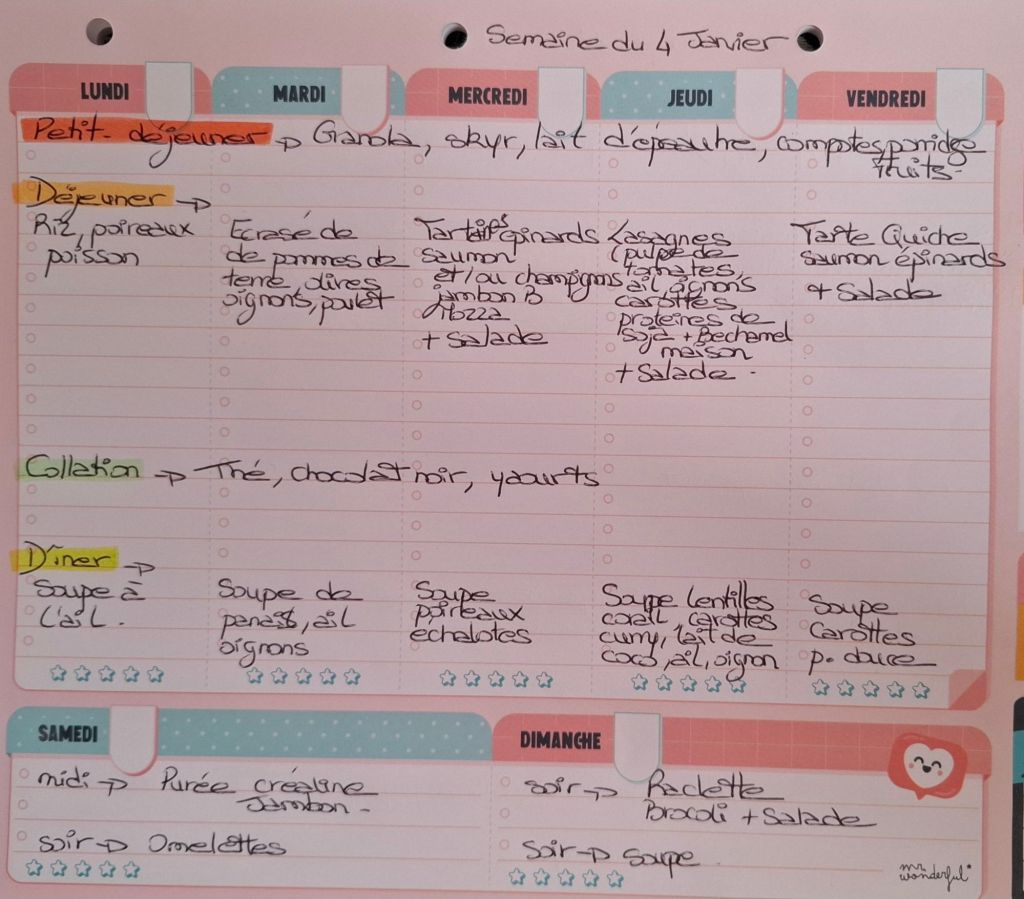 Semaine du 4 Janvier
LUNDI
MARDI
MERCREDI
JEUDI
VENDREDI
Petit-déjeuner → Granola, skyr, lait d'épeautre, compotes, porridge
fruits.
Déjeuner →
Riz, poireaux
poisson
Ecrasé de
de pommes de
terre, olives
oignons, poulet
épinards
saumon
et/ou champignons
jambon B
Mozza
+ Salade
Lasagnes
(pulpe de
tomates,
ail, oignons
carottes
protéines de
soja + Bechamel
maison
+ Salade.
Tarte Quiche
saumon épinards
+ Salade
Collation → Thé, chocolat noir, yaourts
Dîner →
Soupe à
L'ail.
Soupe de
panais, ail
oignons
Soupe
poireaux
echalotes
Soupe lentilles
corail, carottes
curry, lait de
coco, ail, oignon
Soupe
Carottes
p. douce
SAMEDI
midi → Purée créaline
Jambon.
soir → Omelettes
DIMANCHE
soir → Raclette
Brocoli + Salade
soir → Soupe
mr
wonderful*